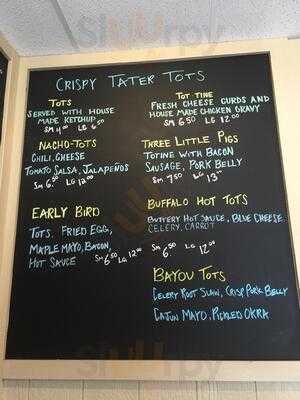 Sirved
CRISPY TATER TOTS
TOTS
SERVED WITH HOUSE
MADE KETCHUP
SM 4.00 LG 6.50
NACHO-TOTS
CHILI, CHEESE
TOMATO SALSA, JALAPEÑOS
SM 6.50 LG 12.00
EARLY BIRD
TOTS, FRIED EGG,
MAPLE MAYO, BACON,
HOT SAUCE SM 6.50 LG 12.00
TOT TINE
FRESH CHEESE CURDS AND
HOUSE MADE CHICKEN GRAVY
SM 6.50 LG 12.00
THREE LITTLE PIGS
TOTINE WITH BACON
SAUSAGE, PORK BELLY
SM 7.50 LG 13.00
BUFFALO HOT TOTS
BUTTERY HOT SAUCE, BLUE CHEESE
CELERY, CARROT
SM 6.50 LG 12.00
BAYOU TOTS
CELERY ROOT SLAW, CRISP PORK BELLY
CAJUN MAYO, PICKLED OKRA
Sirved